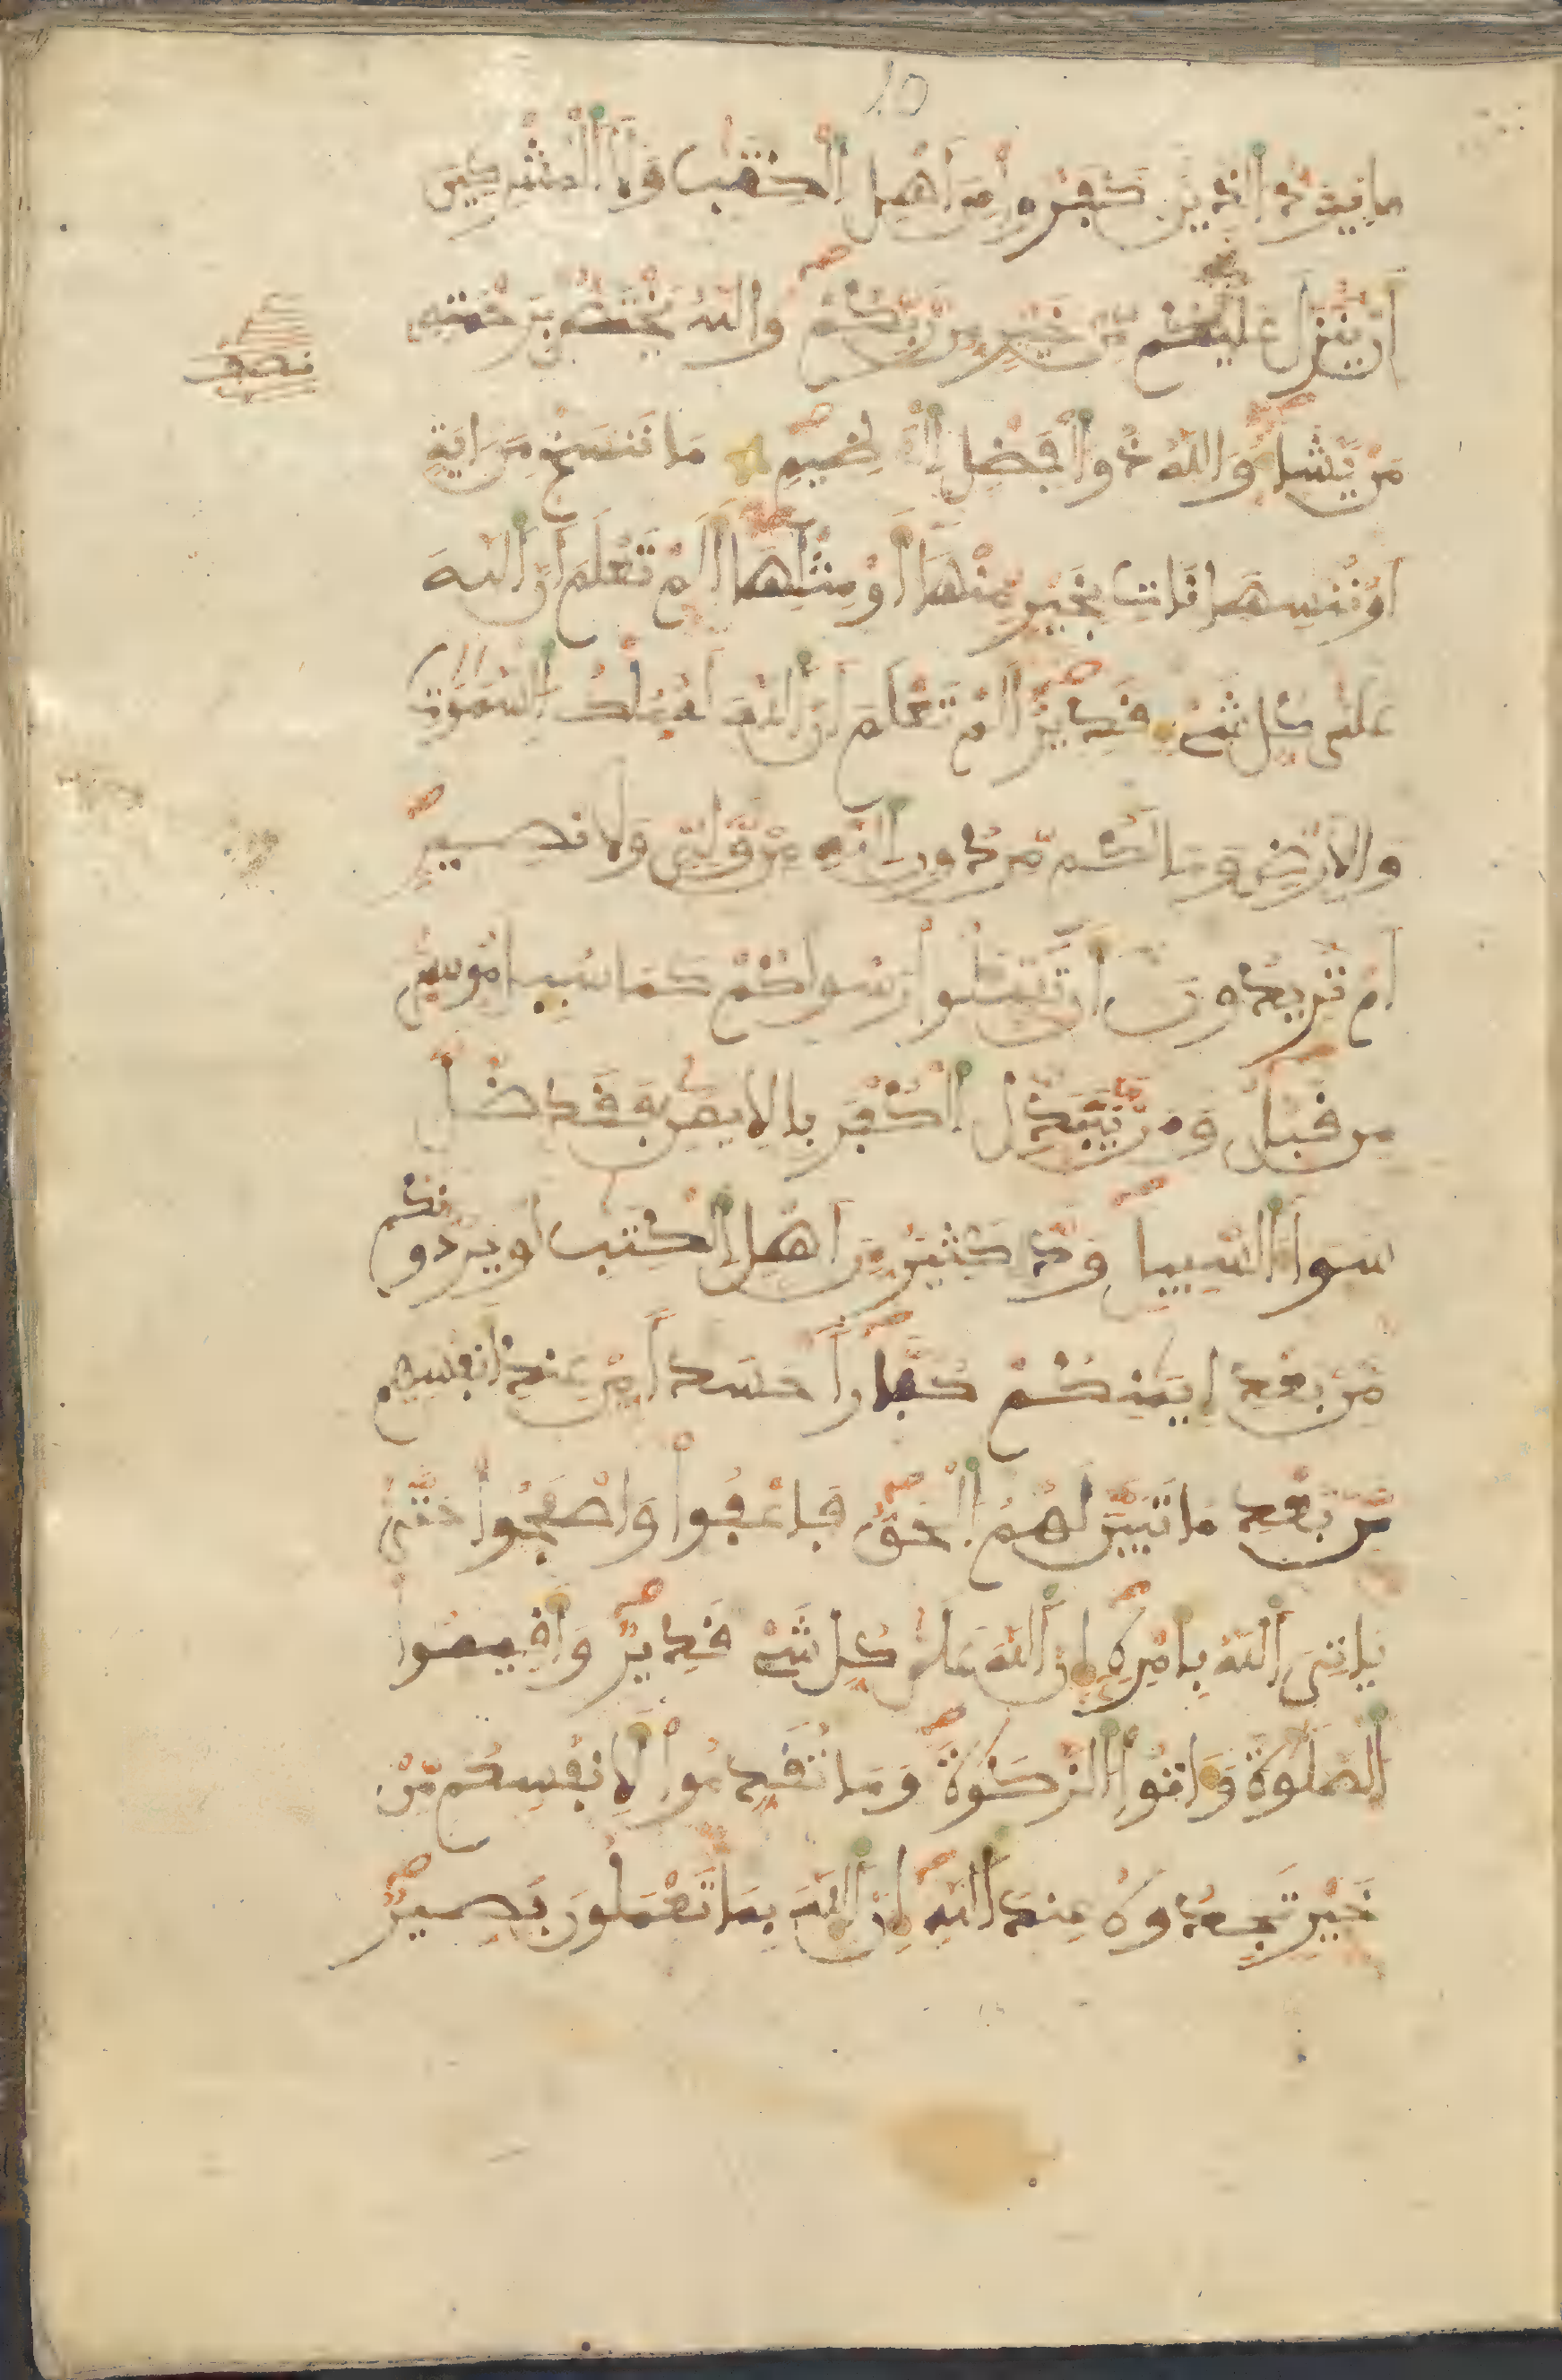 10
ما يود الذين كفروا من اهل الكتب ولا المشركين
ان ينزل عليكم من خير من ربكم والله يختص برحمته
من يشا والله ذو الفضل العظيم ما ننسخ من اية
او ننسها نات بخير منها او مثلها الم تعلم ان الله
على كل شے قدير الم تعلم ان الله له ملك السموت
والارض وما لكم من دون الله من ولي ولا نصير
ام تريدون ان تسلوا رسولكم كما سيل موسى
من قبل ومن يتبدل الكفر بالايمن فقد ضل
سوا السبيل ود كثير من اهل الكتب لو يردونكم
من بعد ايمنكم كفارا حسدا من عند انفسهم
من بعد ما تبين لهم الحق فاعفوا واصفحوا حتى
ياتي الله بامره ان الله على كل شے قدير واقيموا
الصلوة واتوا الزكوة وما تقدموا لانفسكم من
خير تجدوه عند الله ان الله بما تعملون بصير